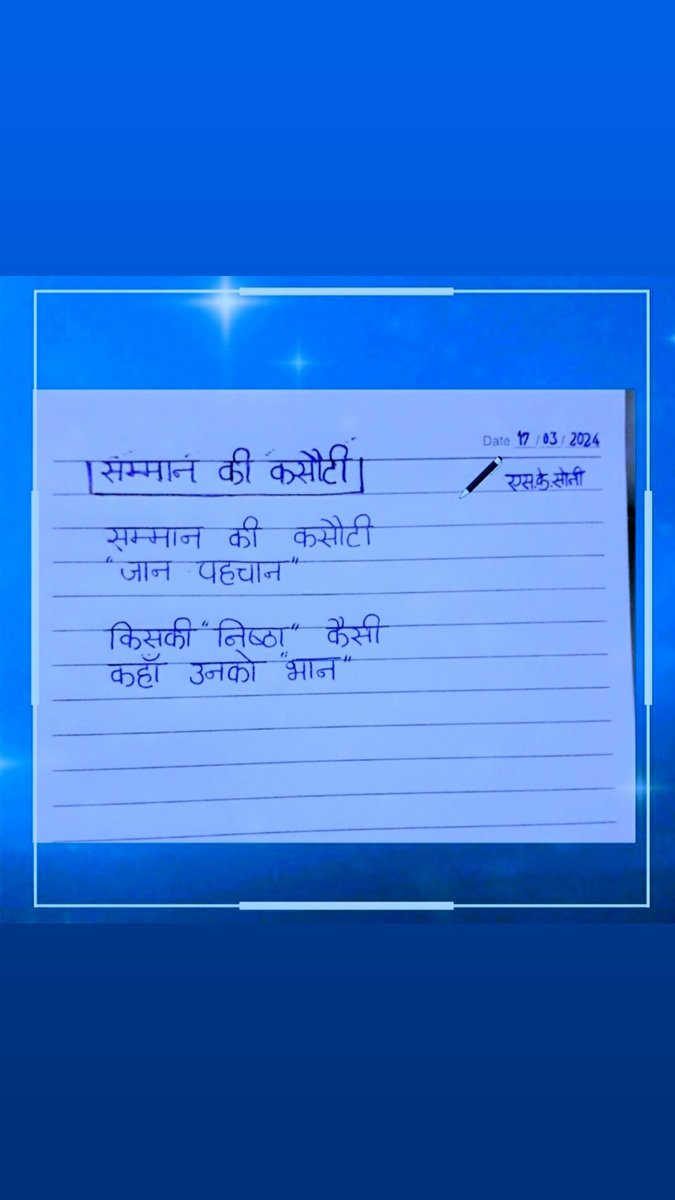 Date 17/03/2024
सम्मान की कसौटी
एस.के.सोनी
सम्मान की कसौटी
"जान पहचान"
किसकी "निष्ठा" कैसी
कहाँ उनको "भान"